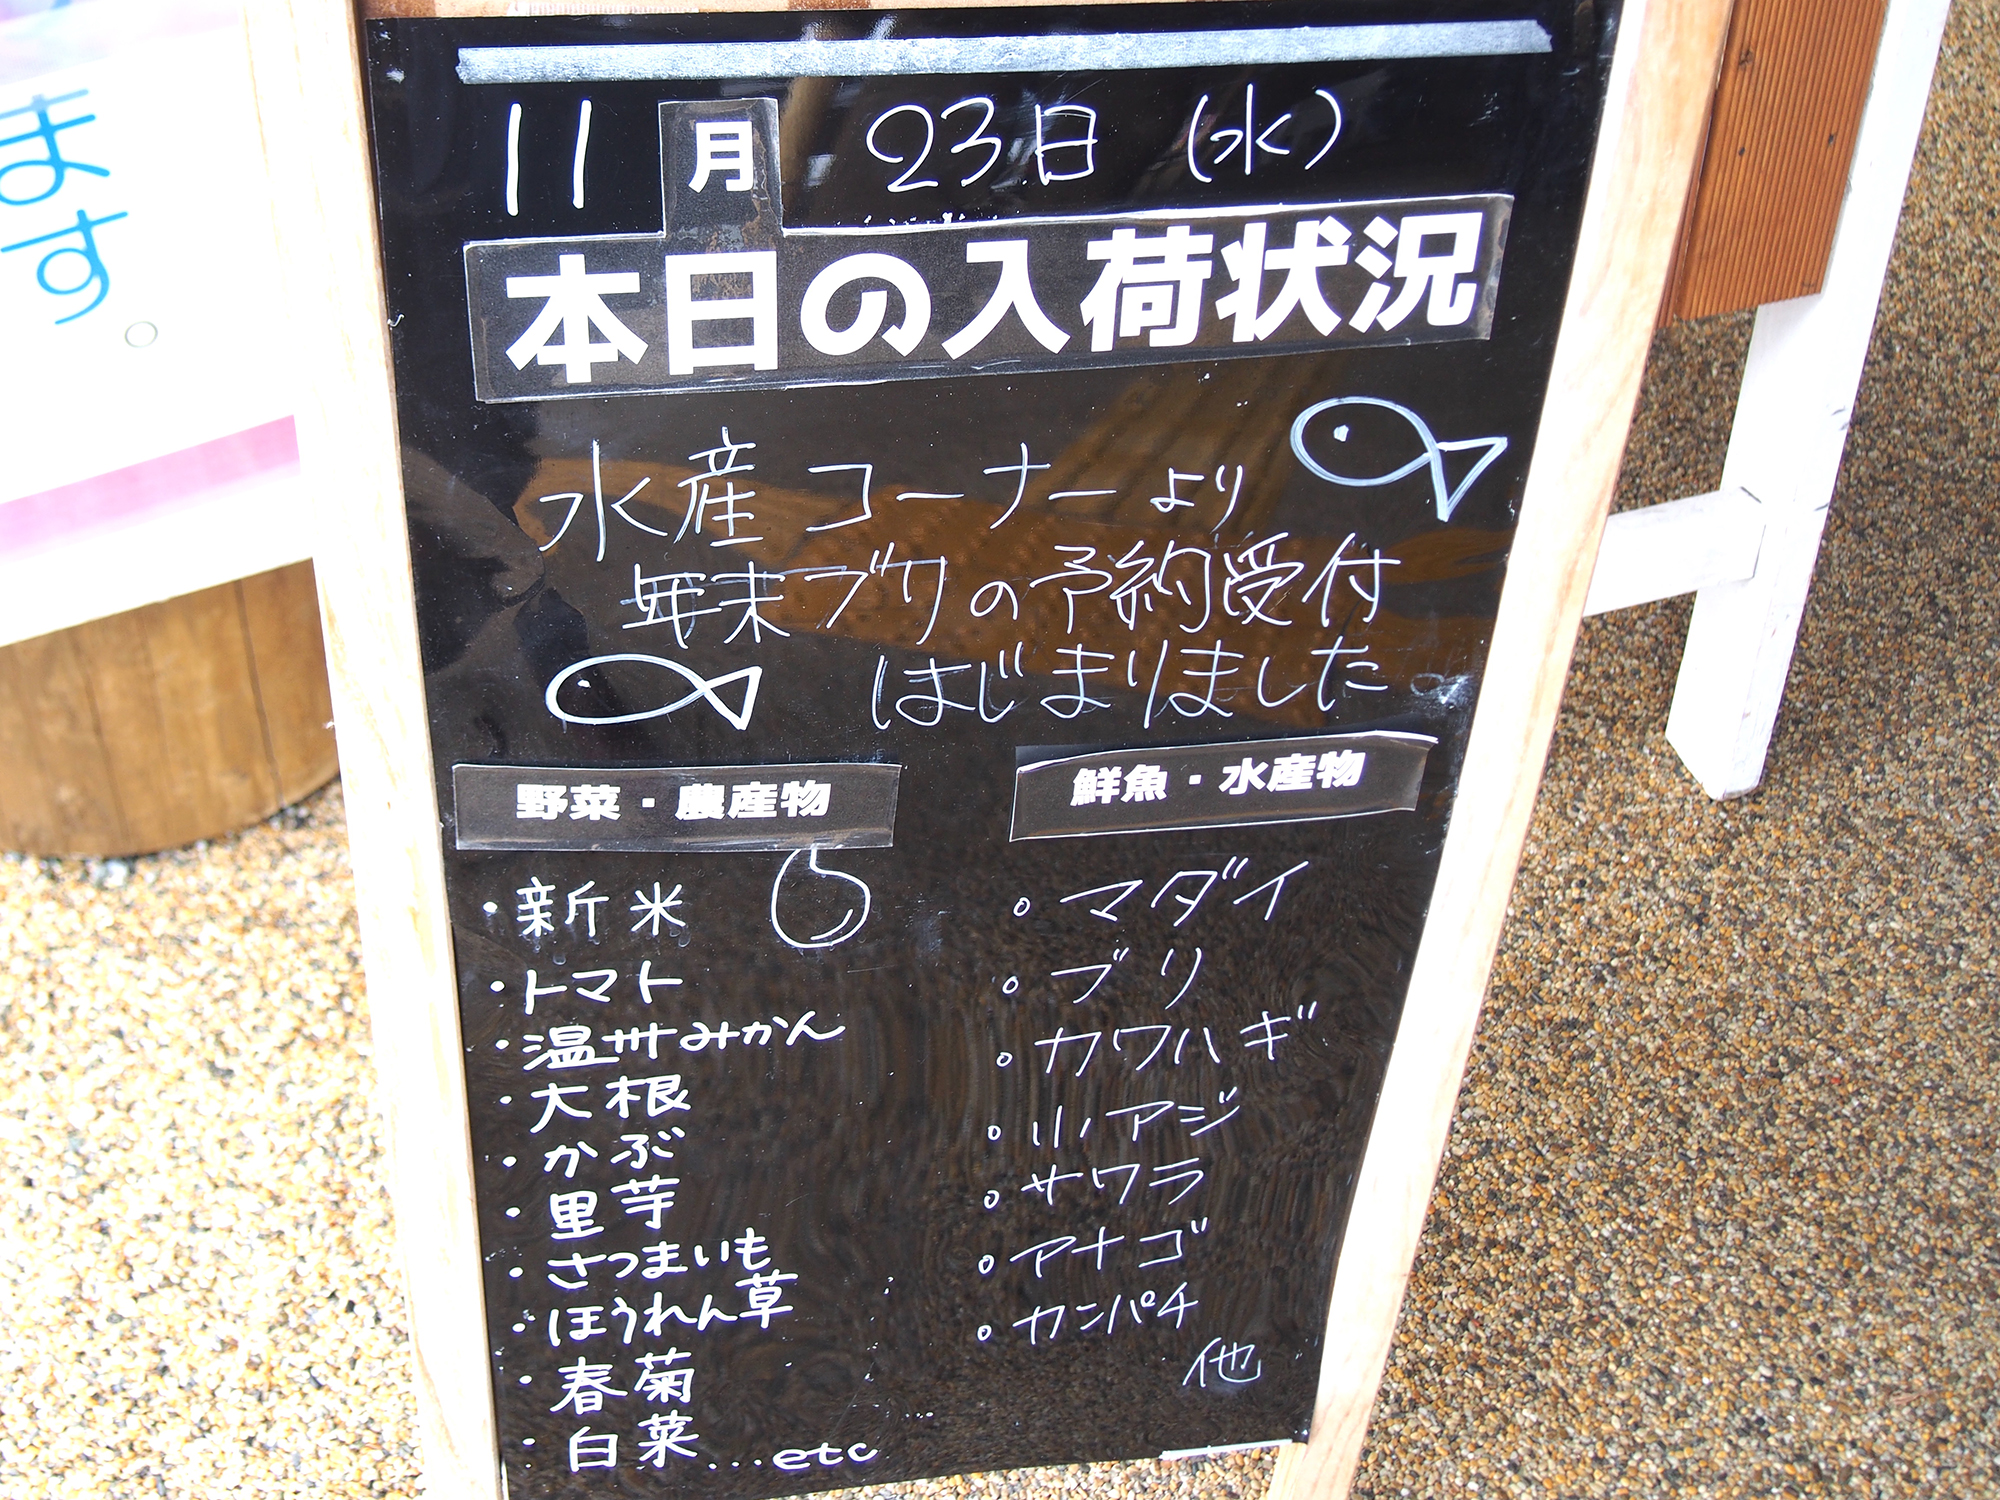 ます。
11月 23日 (水)
本日の入荷状況
水産コーナーより
年末ブリの予約受付
はじまりました
野菜・農産物
・新米
・トマト
・温州みかん
・大根
・かぶ
・里芋
・さつまいも
・ほうれん草
・春菊
・白菜...etc
鮮魚・水産物
。マダイ
。ブリ
。カワハギ
。小アジ
。サワラ
。アナゴ
。カンパチ
他